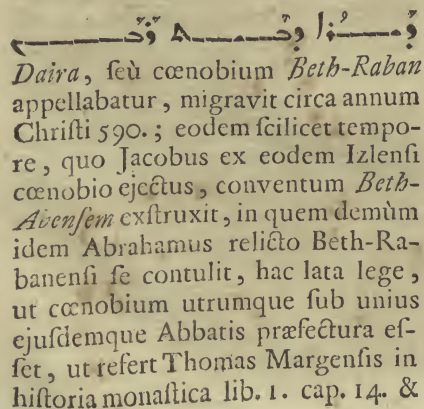 ܕܝܪܐ ܕܒܝܬ ܪܒܢ
Daira, ſeù cœnobium Beth-Raban
appellabatur, migravit circa annum
Chriſti 590.; eodem ſcilicet tempo-
re, quo Jacobus ex eodem Izlenſi
cœnobio ejectus, conventum Beth-
Avenſem exſtruxit, in quem demùm
idem Abrahamus relicto Beth-Ra-
banenſi ſe contulit, hac lata lege,
ut cœnobium utrumque ſub unius
ejuſdemque Abbatis præfectura eſ-
ſet, ut refert Thomas Margenſis in
hiſtoria monaſtica lib. 1. cap. 14. &